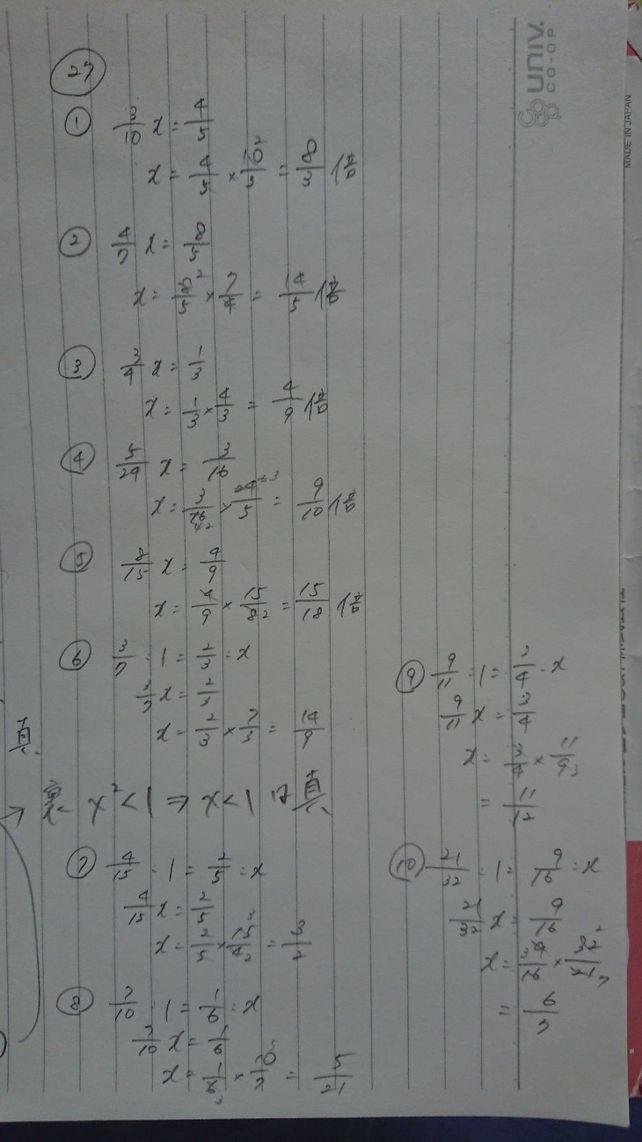 27
① 3/10 x = 4/5
x = 4/5 × 10/3 = 8/3
② 4/7 x = 8/5
x = 8/5 × 7/4 = 14/5
③ 3/4 x = 1/3
x = 1/3 × 4/3 = 4/9
④ 5/24 x = 3/16
x = 3/16 × 24/5 = 9/10
⑤ 8/15 x = 4/9
x = 4/9 × 15/8 = 15/18
⑥ 3/7 : 1 = 2/3 : x
3/7 x = 2/3
x = 2/3 × 7/3 = 14/9
x² < 1 ⇒ x < 1 は真
真
⑦ 4/15 : 1 = 2/5 : x
4/15 x = 2/5
x = 2/5 × 15/4 = 3/2
⑧ 7/10 : 1 = 1/6 : x
7/10 x = 1/6
x = 1/6 × 10/7 = 5/21
⑨ 9/11 : 1 = 3/4 : x
9/11 x = 3/4
x = 3/4 × 11/9
= 11/12
⑩ 21/32 : 1 = 9/16 : x
21/32 x = 9/16
x = 9/16 × 32/21
= 6/7
univ.
CO-OP
MADE IN JAPAN